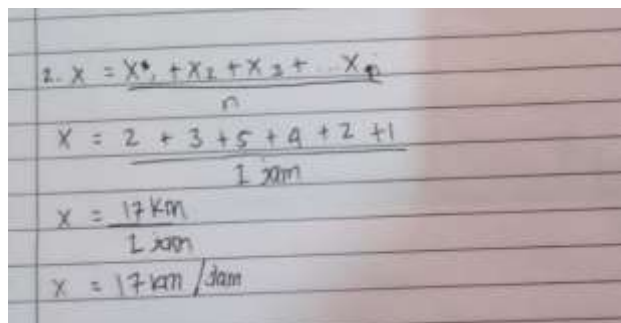 2. X = X₁ + X₂ + X₃ + ... Xₙ
n
X = 2 + 3 + 5 + 4 + 2 + 1
1 jam
X = 17 km
1 jam
X = 17 km / Jam